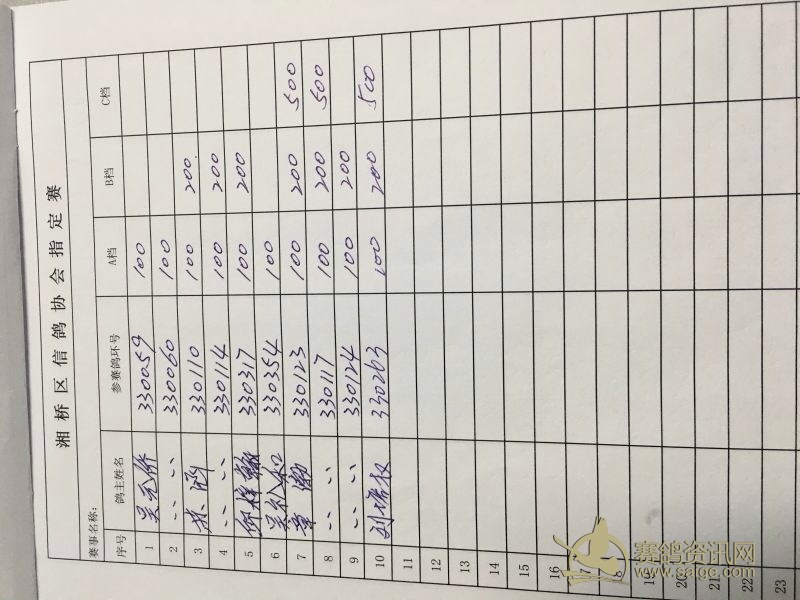 湘桥区信鸽协会指定赛
赛事名称:
序号 鸽主姓名 参赛鸽环号 A档 B档 C档
1 330059 100
2 〃 330060 100
3 林 330110 100 200
4 〃 330114 100 200
5 330317 100 200
6 330354 100
7 330123 100 200 500
8 〃 330117 100 200 500
9 〃 330124 100 200
10 330263 100 200 500
11
12
13
14
15
16
17
18
19
20
21
22
23
赛鸽资讯网
www.saige.com